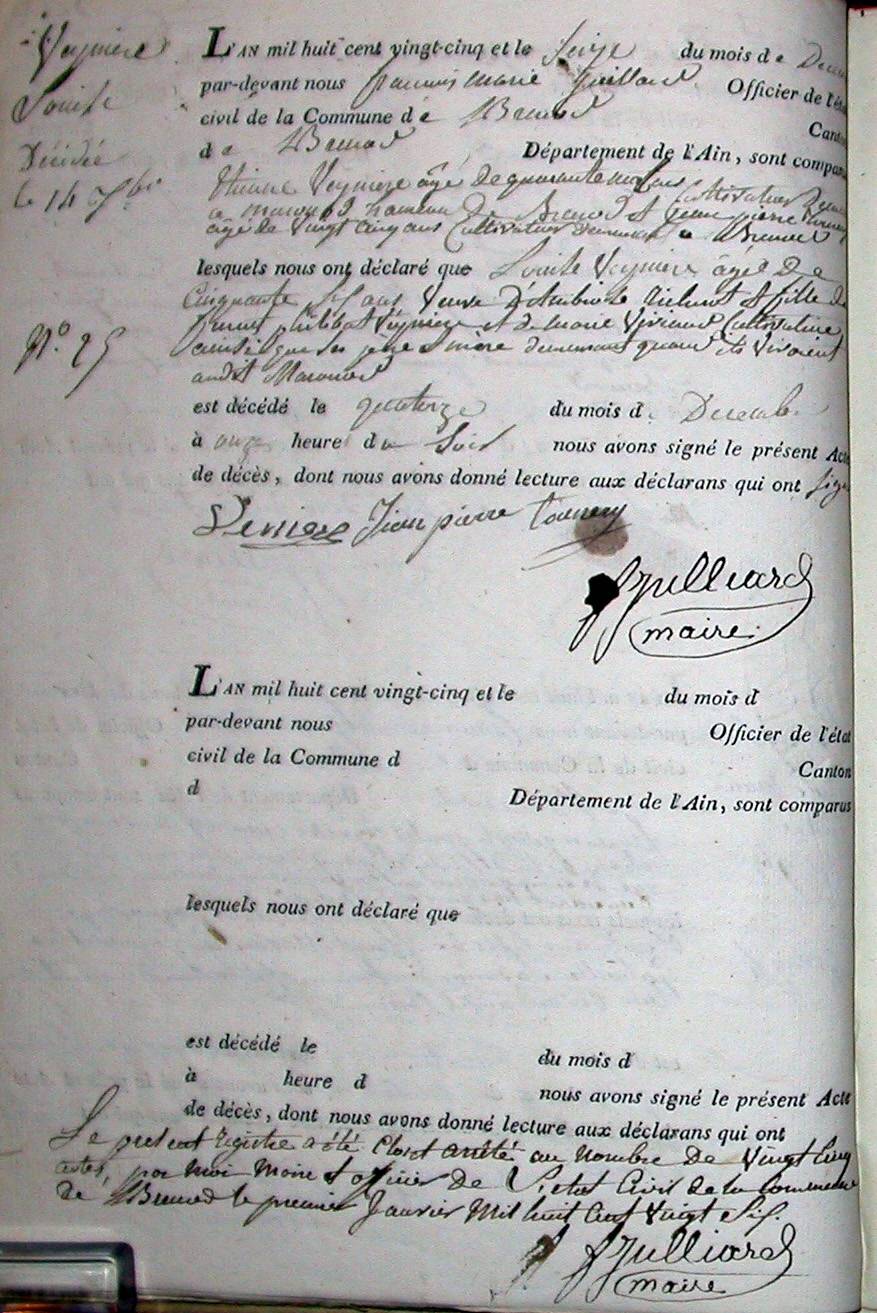 Veyniere
Louise
Décédée
le 14 Xbre
N.º 25
L'AN mil huit cent vingt-cinq et le seize du mois de Décem
par-devant nous francois marie Juillard Officier de l'éta
civil de la Commune de Brenod Canton
de Brenod Département de l'Ain, sont comparus
Etienne Veyniere âgé de quarante ans Cultivateur
a hameau de Brenod et Jean pierre
âgé de vingt cinq ans Cultivateur demeurant a Brenod
lesquels nous ont déclaré que Louise Veyniere âgée De
Cinquante Six ans Veuve D'Ambroise et fille de
Veyniere et de Marie Cultivateurs
ainsi que ses pere et mere demeurant quand ils vivoient
audit
est décédé le quatorze du mois de Décembre
à onze heures du Soir nous avons signé le présent Acte
de décès, dont nous avons donné lecture aux déclarans qui ont signé
Veniere Jean pierre
Juilliard
maire.
L'AN mil huit cent vingt-cinq et le du mois d
par-devant nous Officier de l'état
civil de la Commune d Canton
d Département de l'Ain, sont comparus
lesquels nous ont déclaré que
est décédé le du mois d
à heure d nous avons signé le présent Acte
de décès, dont nous avons donné lecture aux déclarans qui ont
Le present Registre a été Clos et arrêté au nombre De Vingt Cinq
actes, par moi Maire et officier De l'état Civil de la Commune
de Brenod le premier Janvier Mil huit Cent Vingt Six.
Juilliard
maire